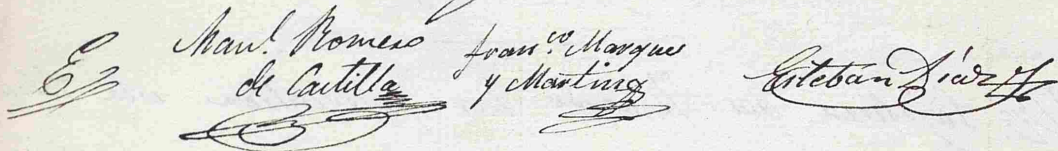 E
Man.l Romero
de Castilla
Fran.co Marque
y Martinez
Esteban Díaz